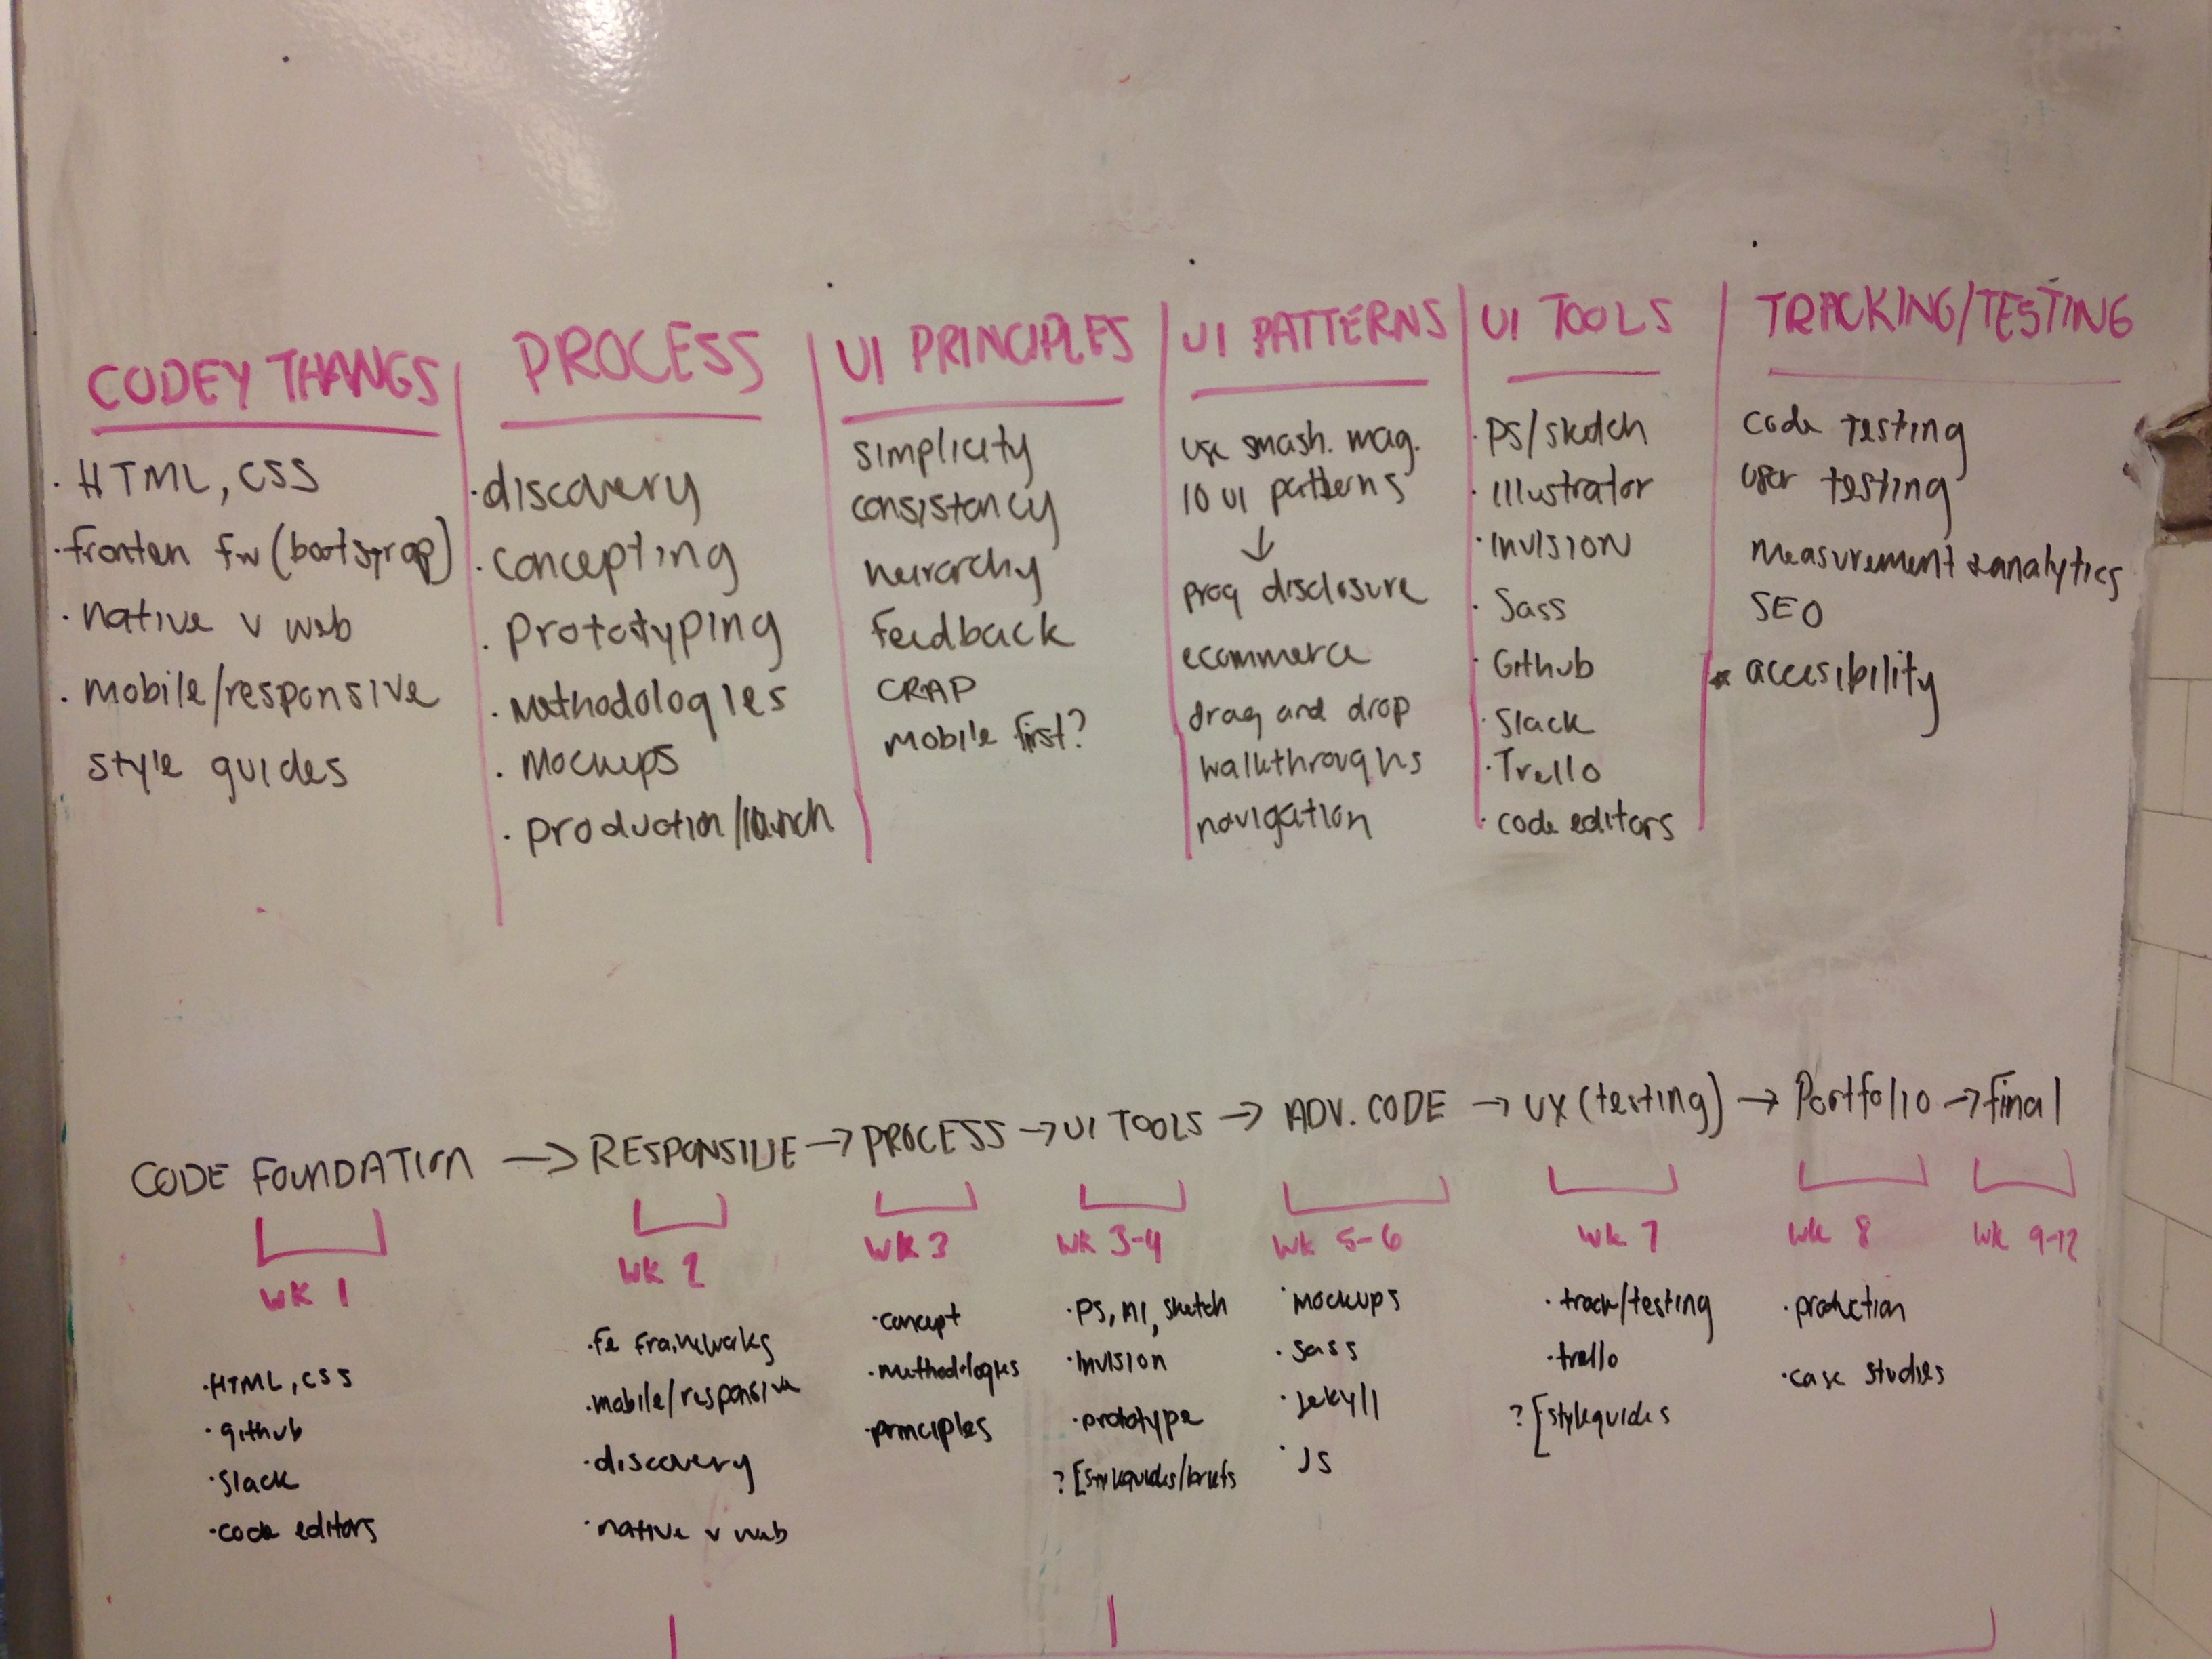 CODEY THANGS
· HTML, CSS
· fronten fw (bootstrap)
· native v web
· mobile/responsive
style guides
PROCESS
· discovery
· concepting
· prototyping
· methodologies
· mockups
· production/launch
UI PRINCIPLES
simplicity
consistancy
heirarchy
feedback
CRAP
mobile first?
UI PATTERNS
use smash. mag.
10 UI patterns
↓
prog disclosure
ecommerce
drag and drop
walkthroughs
navigation
UI TOOLS
· PS/sketch
· Illustrator
· Invision
· Sass
· Github
· Slack
· Trello
· code editors
TRACKING/TESTING
code testing
user testing
measurement & analytics
SEO
* accesibility
CODE FOUNDATION → RESPONSIVE → PROCESS → UI TOOLS → ADV. CODE → UX (testing) → Portfolio → final
WK 1
· HTML, CSS
· github
· Slack
· code editors
WK 2
· fe frameworks
· mobile/responsive
· discovery
· native v web
WK 3
· concept
· methodologies
· principles
WK 3-4
· PS, AI, sketch
· Invision
· prototype
? [styleguides/briefs
WK 5-6
· mockups
· sass
· Jekyll
· JS
WK 7
· track/testing
· trello
? [styleguides
WK 8
· production
· case studies
WK 9-12